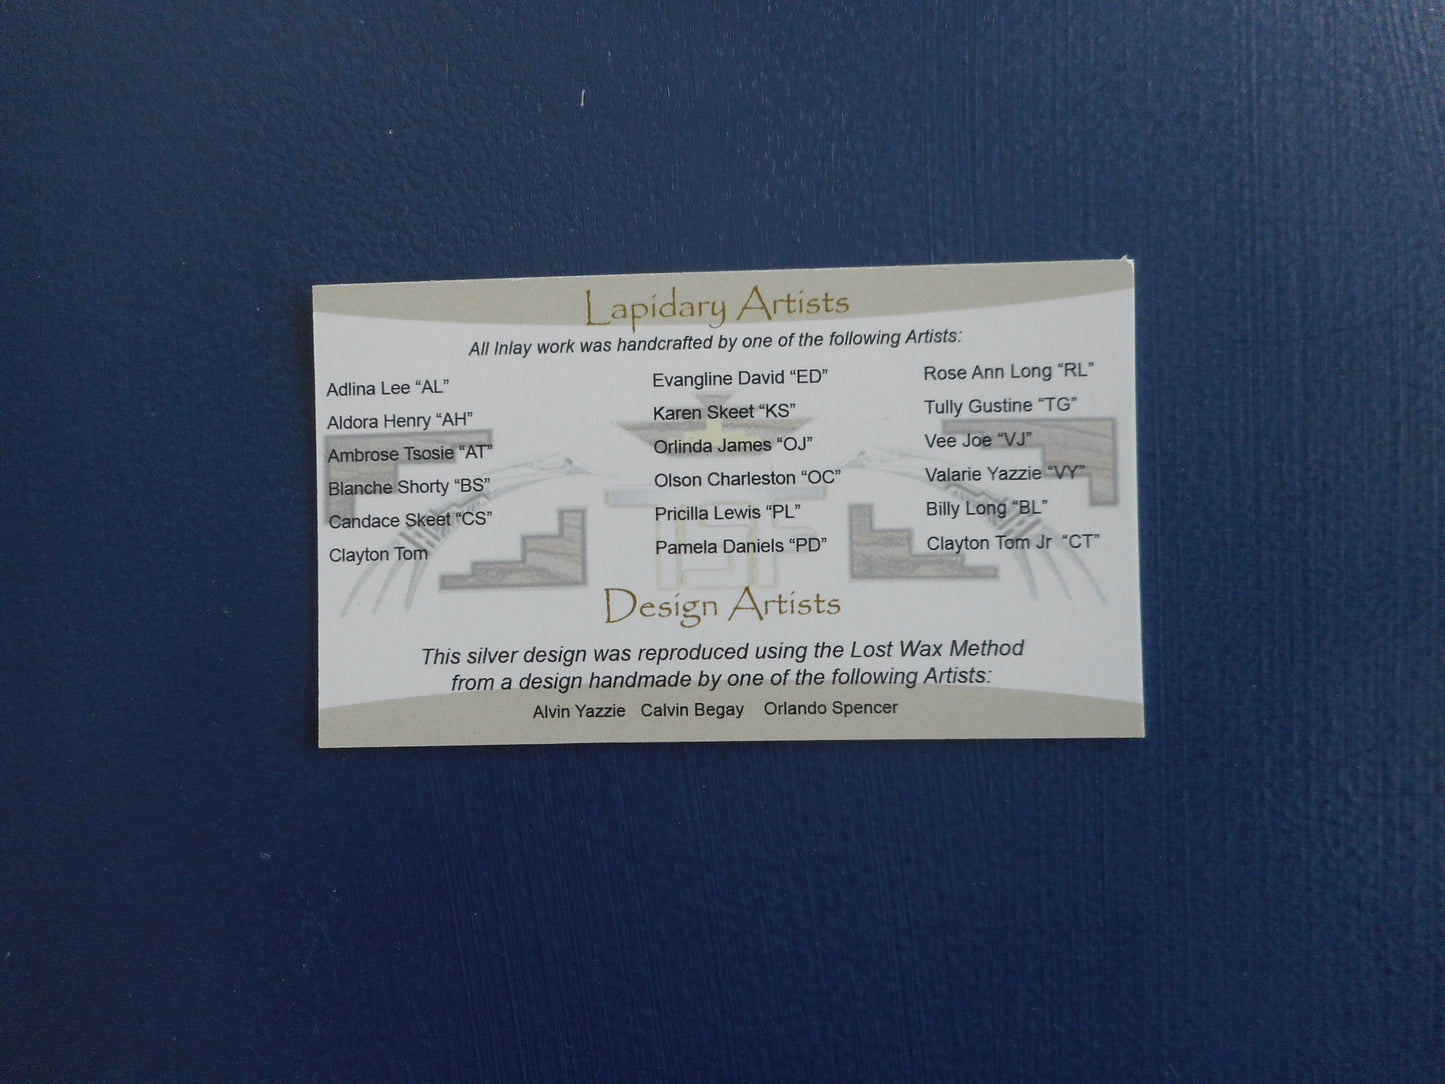 Lapidary Artists
All Inlay work was handcrafted by one of the following Artists:
Adlina Lee “AL”
Aldora Henry “AH”
Ambrose Tsosie “AT”
Blanche Shorty “BS”
Candace Skeet “CS”
Clayton Tom
Evangline David “ED”
Karen Skeet “KS”
Orlinda James “OJ”
Olson Charleston “OC”
Pricilla Lewis “PL”
Pamela Daniels “PD”
Rose Ann Long “RL”
Tully Gustine “TG”
Vee Joe “VJ”
Valarie Yazzie “VY”
Billy Long “BL”
Clayton Tom Jr “CT”
TSF
Design Artists
This silver design was reproduced using the Lost Wax Method
from a design handmade by one of the following Artists:
Alvin Yazzie Calvin Begay Orlando Spencer